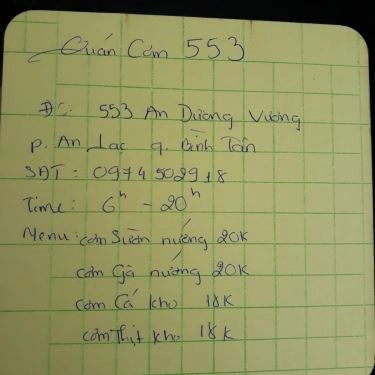 Quán Cơm 553
ĐC: 553 An Dương Vương
P. An Lạc q. Bình Tân
SĐT: 0974502918
Time: 6h - 20h
Menu: cơm Sườn nướng 20K
cơm Gà nướng 20K
cơm Cá kho 18K
cơm Thịt kho 18K